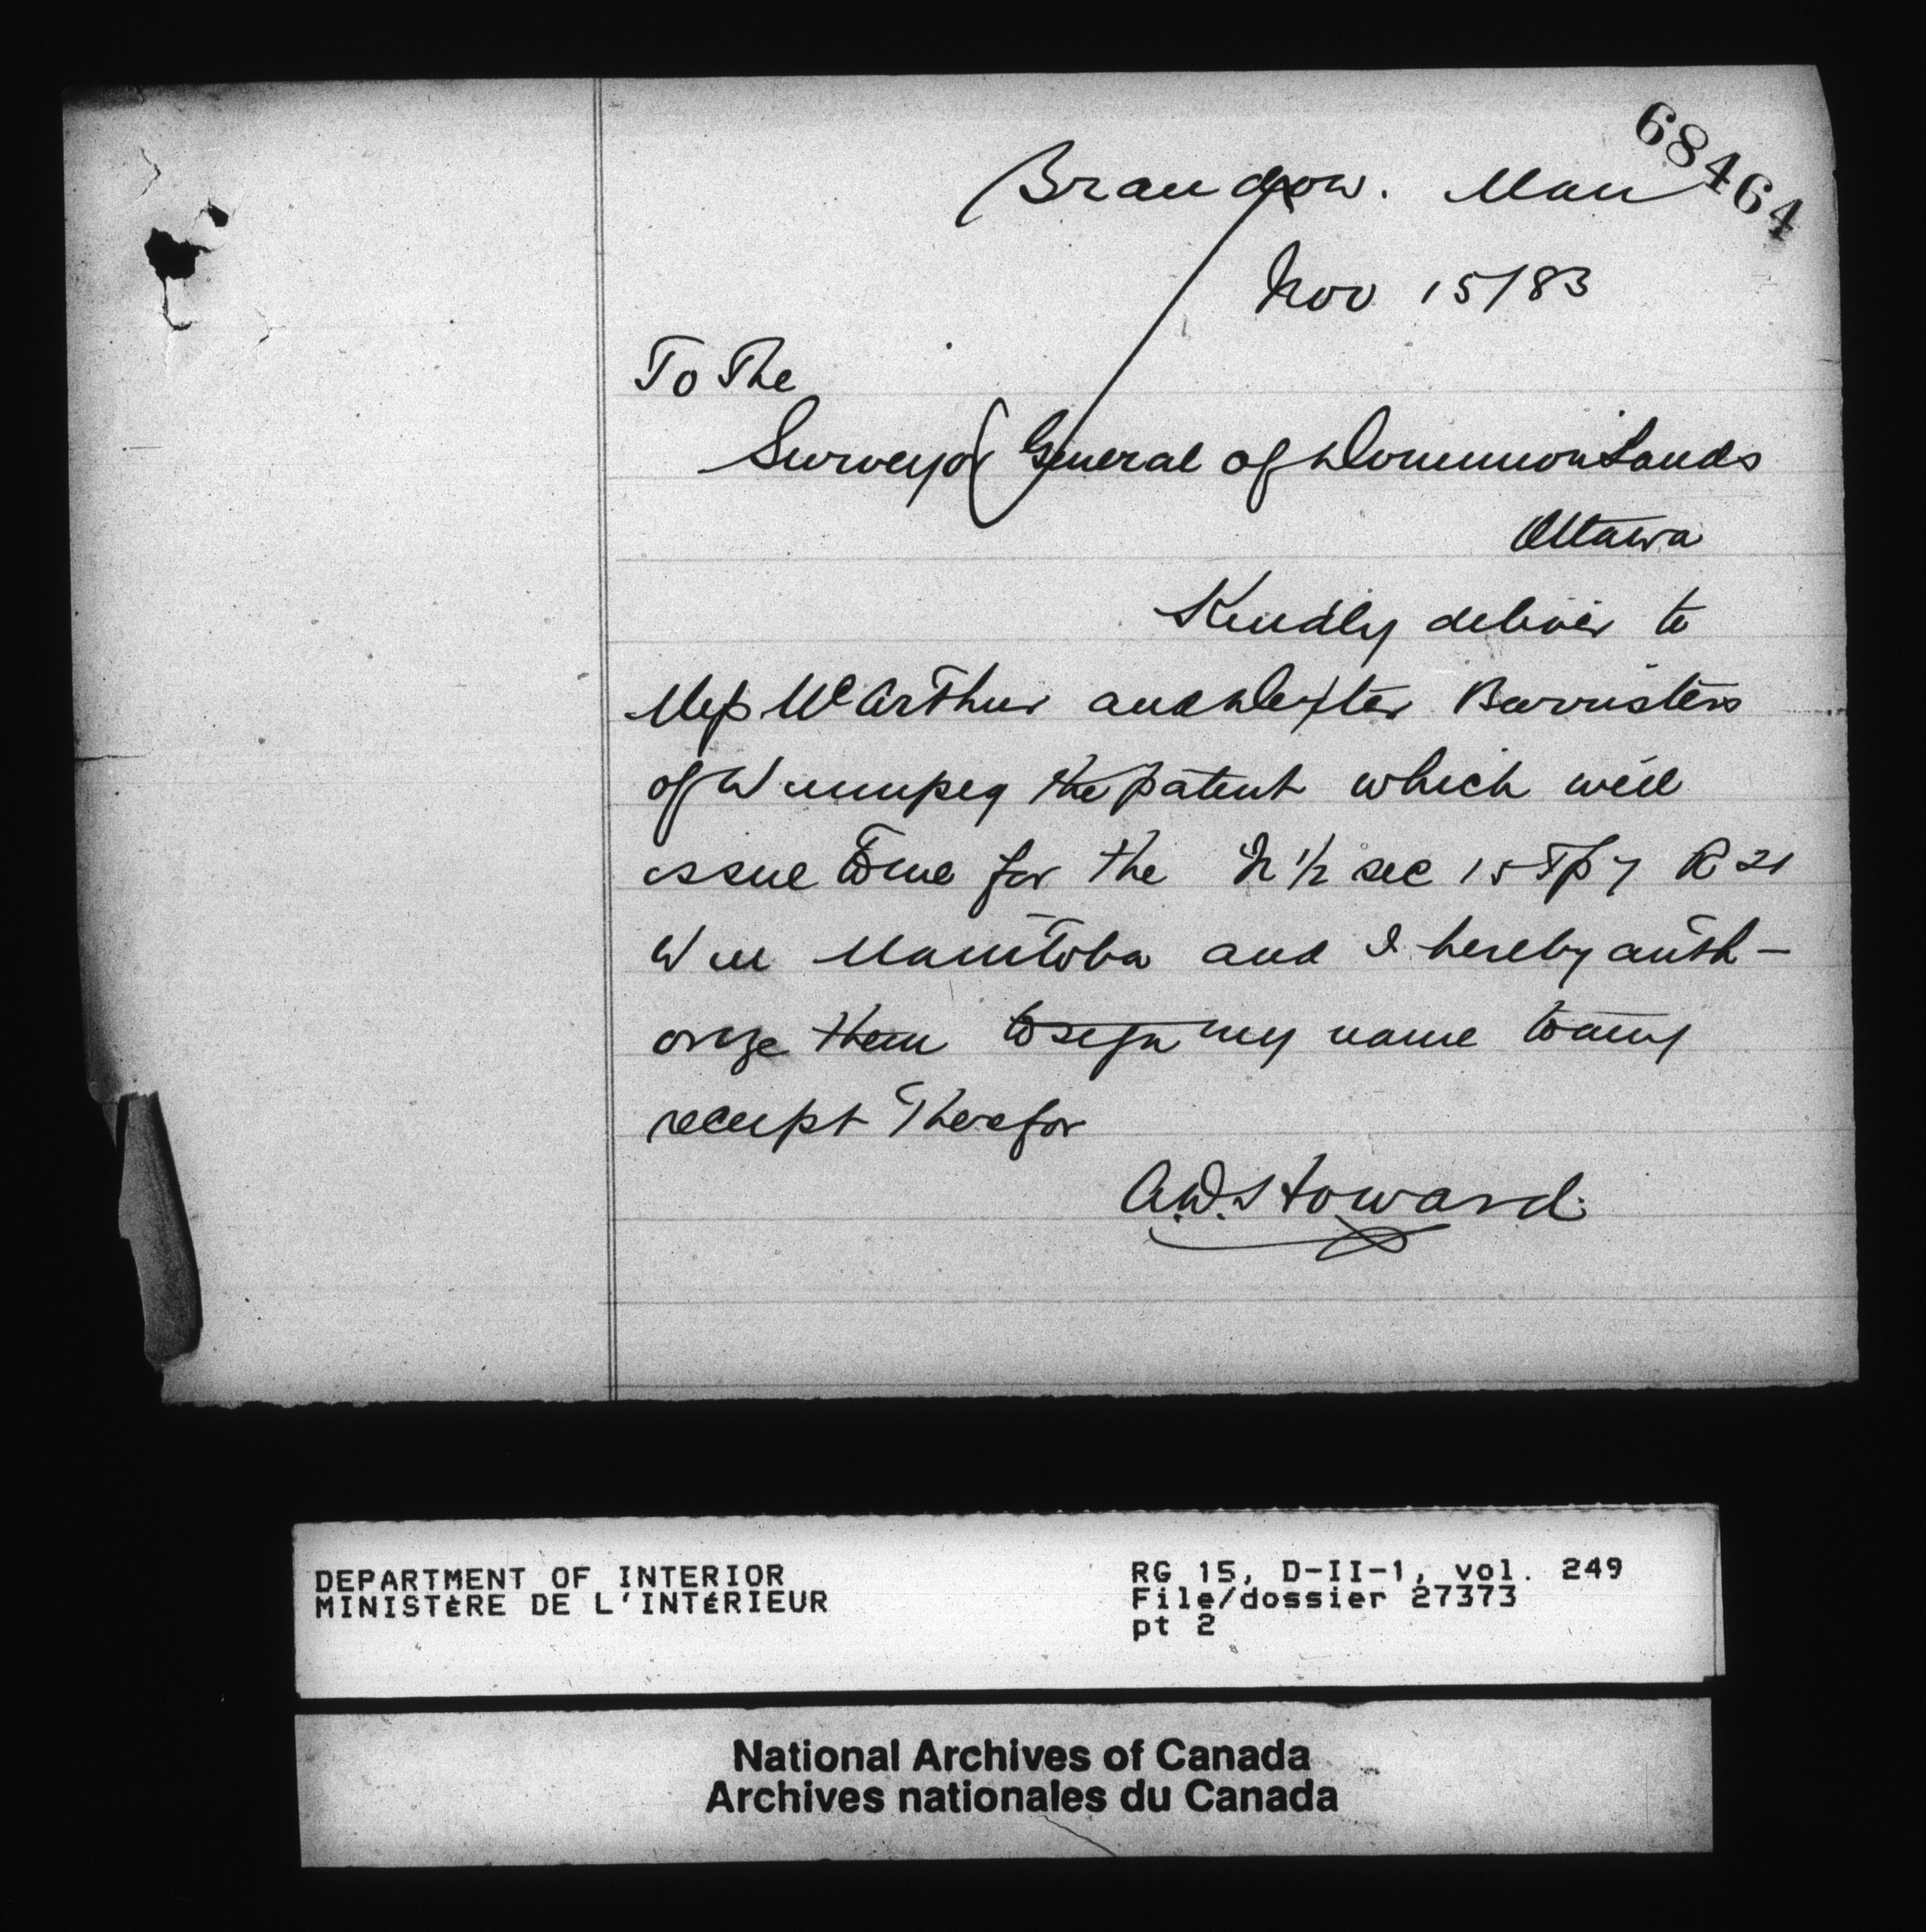 68464
Brandon. Man
Nov 15/83
To The
Surveyor General of Dominion Lands
Ottawa
Kindly deliver to
Mess McArthur and Dexter Barristers
of Winnipeg the patent which will
issue to me for the N 1/2 sec 15 Tp 7 R 21
W M Manitoba and I hereby auth-
orize them to sign my name to any
receipt Therefor
A.D. Howard.
DEPARTMENT OF INTERIOR
MINISTÈRE DE L'INTÉRIEUR
RG 15, D-II-1, vol. 249
File/dossier 27373
pt 2
National Archives of Canada
Archives nationales du Canada